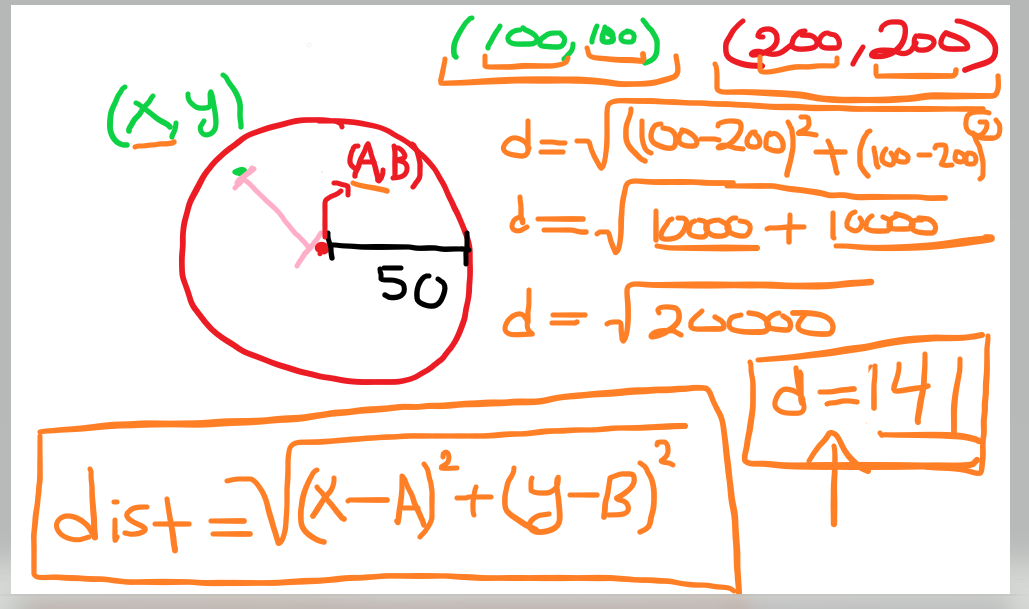 (100,100) (200,200)
(x,y)
(A,B)
50
d=√((100-200)²+(100-200)²
d=√10000+10000
d=√20000
d=141
dist=√(x-A)²+(y-B)²